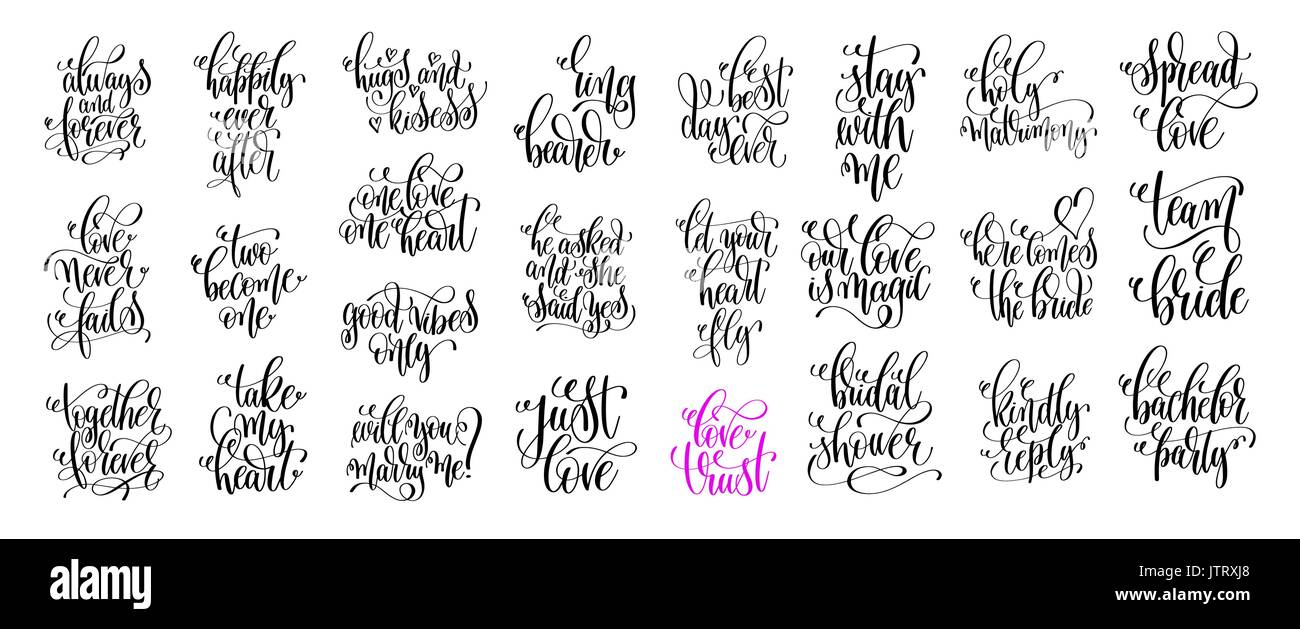 always
and
forever
happily
ever
after
hugs and
kisess
ring
bearer
best
day
ever
stay
with
me
holy
matrimony
spread
love
love
never
fails
two
become
one
one love
one heart
good vibes
only
he asked
and she
said yes
let your
heart
fly
our love
is magic
here comes
the bride
team
bride
together
forever
take
my
heart
will you
marry me?
just
love
love
trust
bridal
shower
kindly
reply
bachelor
party
alamy
a
alamy
Image ID: JTRXJ8
www.alamy.com